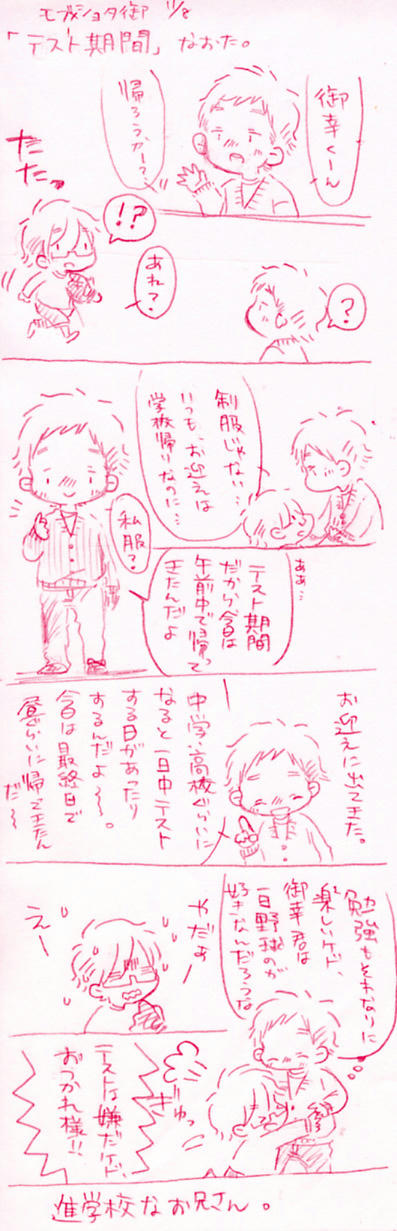 モブ×ショタ御 11/8
「テスト期間」なおた。
御幸くーん
帰ろうかー？
たたっ
!?
あれ？
？
制服じゃない…
いつも、お迎えは
学校帰りなのに…
私服？
ああ…
テスト期間
だから今日は
午前中で帰って
きたんだよ
お迎えに出てきた。
中学、高校ぐらいに
なると一日中テスト
する日があったり
するんだよ〜。
今日は最終日で
昼ぐらいに帰ってきたん
だ〜
勉強もそれなりに
楽しいケド、
御幸君は
一日野球のが
好きなんだろうな
やだぁ
えー
ぎゅっ
テストは嫌だけど、
おつかれ様!!
進学校なお兄さん。